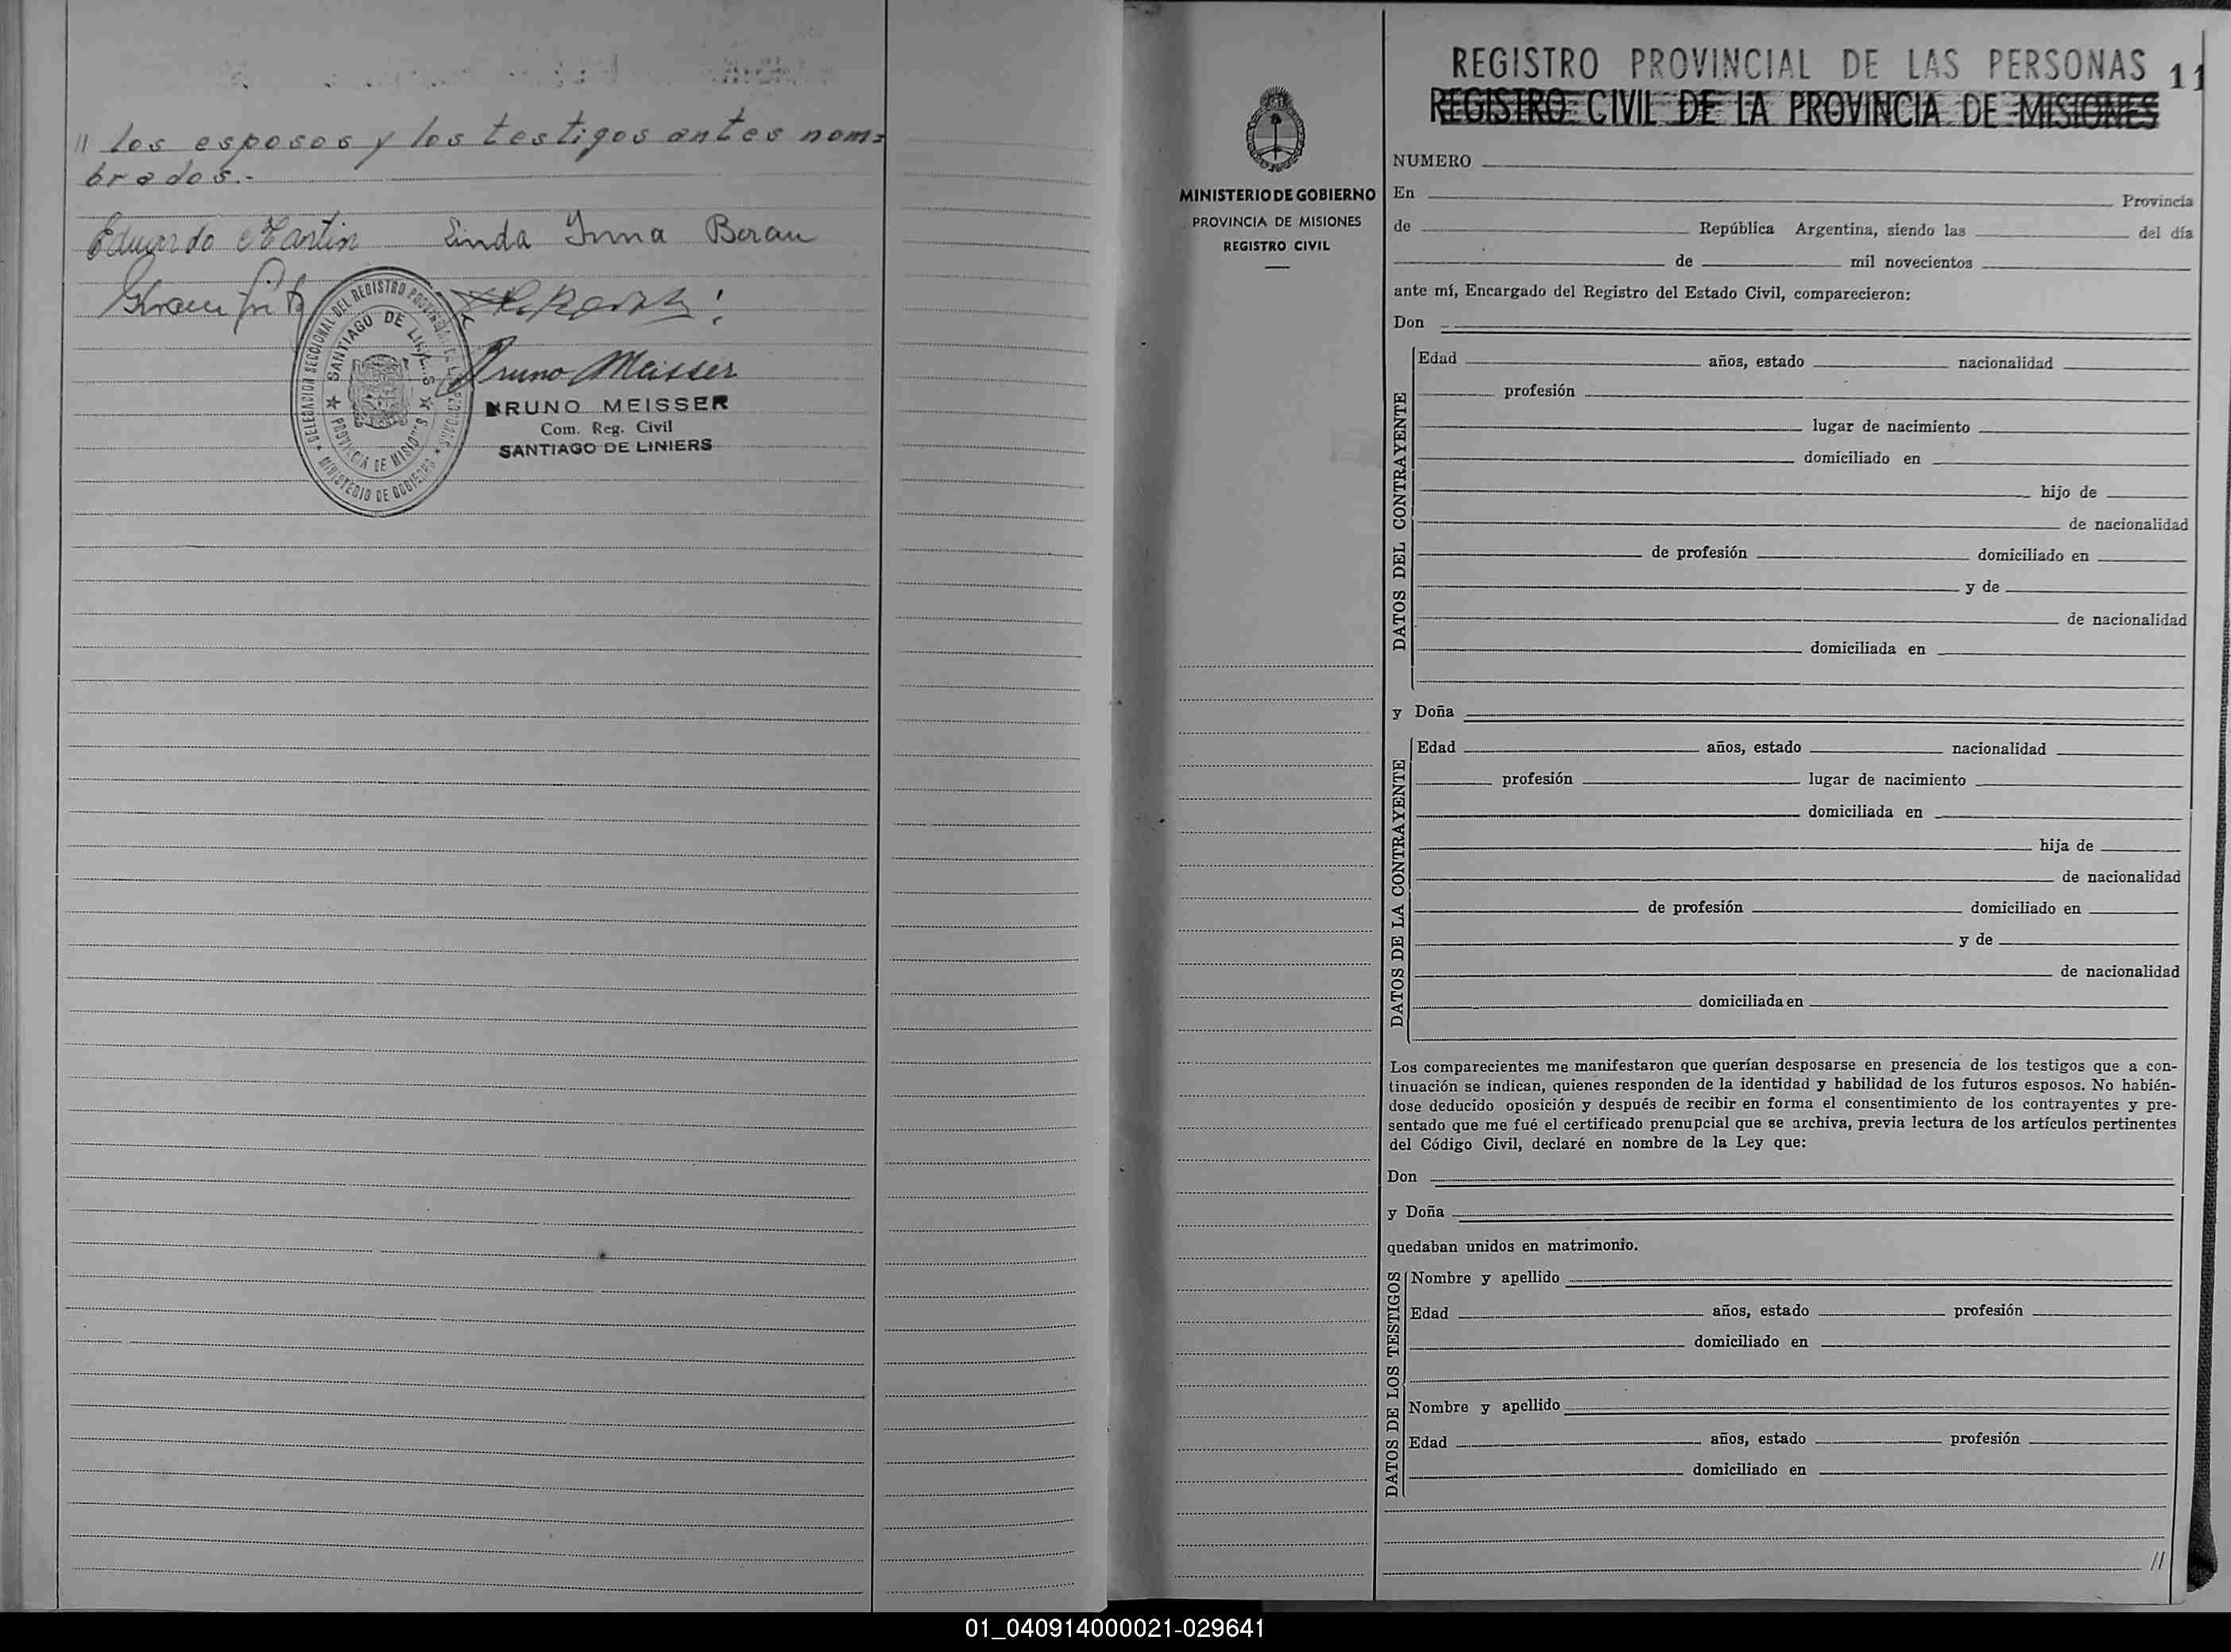 // los esposos y los testigos antes nom=
brados.-
Eduardo Martin Linda Irma Beran
BRUNO MEISSER
Com. Reg. Civil
SANTIAGO DE LINIERS
DELEGACION SECCIONAL DEL REGISTRO PROVINCIAL DE LAS PERSONAS
SANTIAGO DE LINIERS
PROVINCIA DE MISIONES
MINISTERIO DE GOBIERNO
Bruno Meisser
MINISTERIO DE GOBIERNO
PROVINCIA DE MISIONES
REGISTRO CIVIL
REGISTRO PROVINCIAL DE LAS PERSONAS 11
REGISTRO CIVIL DE LA PROVINCIA DE MISIONES
NUMERO
En Provincia
de República Argentina, siendo las del día
de mil novecientos
ante mí, Encargado del Registro del Estado Civil, comparecieron:
Don
DATOS DEL CONTRAYENTE
Edad años, estado nacionalidad
profesión
lugar de nacimiento
domiciliado en
hijo de
de nacionalidad
de profesión domiciliado en
y de
de nacionalidad
domiciliada en
y Doña
DATOS DE LA CONTRAYENTE
Edad años, estado nacionalidad
profesión lugar de nacimiento
domiciliada en
hija de
de nacionalidad
de profesión domiciliado en
y de
de nacionalidad
domiciliada en
Los comparecientes me manifestaron que querían desposarse en presencia de los testigos que a con-
tinuación se indican, quienes responden de la identidad y habilidad de los futuros esposos. No habién-
dose deducido oposición y después de recibir en forma el consentimiento de los contrayentes y pre-
sentado que me fué el certificado prenupcial que se archiva, previa lectura de los artículos pertinentes
del Código Civil, declaré en nombre de la Ley que:
Don
y Doña
quedaban unidos en matrimonio.
DATOS DE LOS TESTIGOS
Nombre y apellido
Edad años, estado profesión
domiciliado en
Nombre y apellido
Edad años, estado profesión
domiciliado en
//
01_040914000021-029641